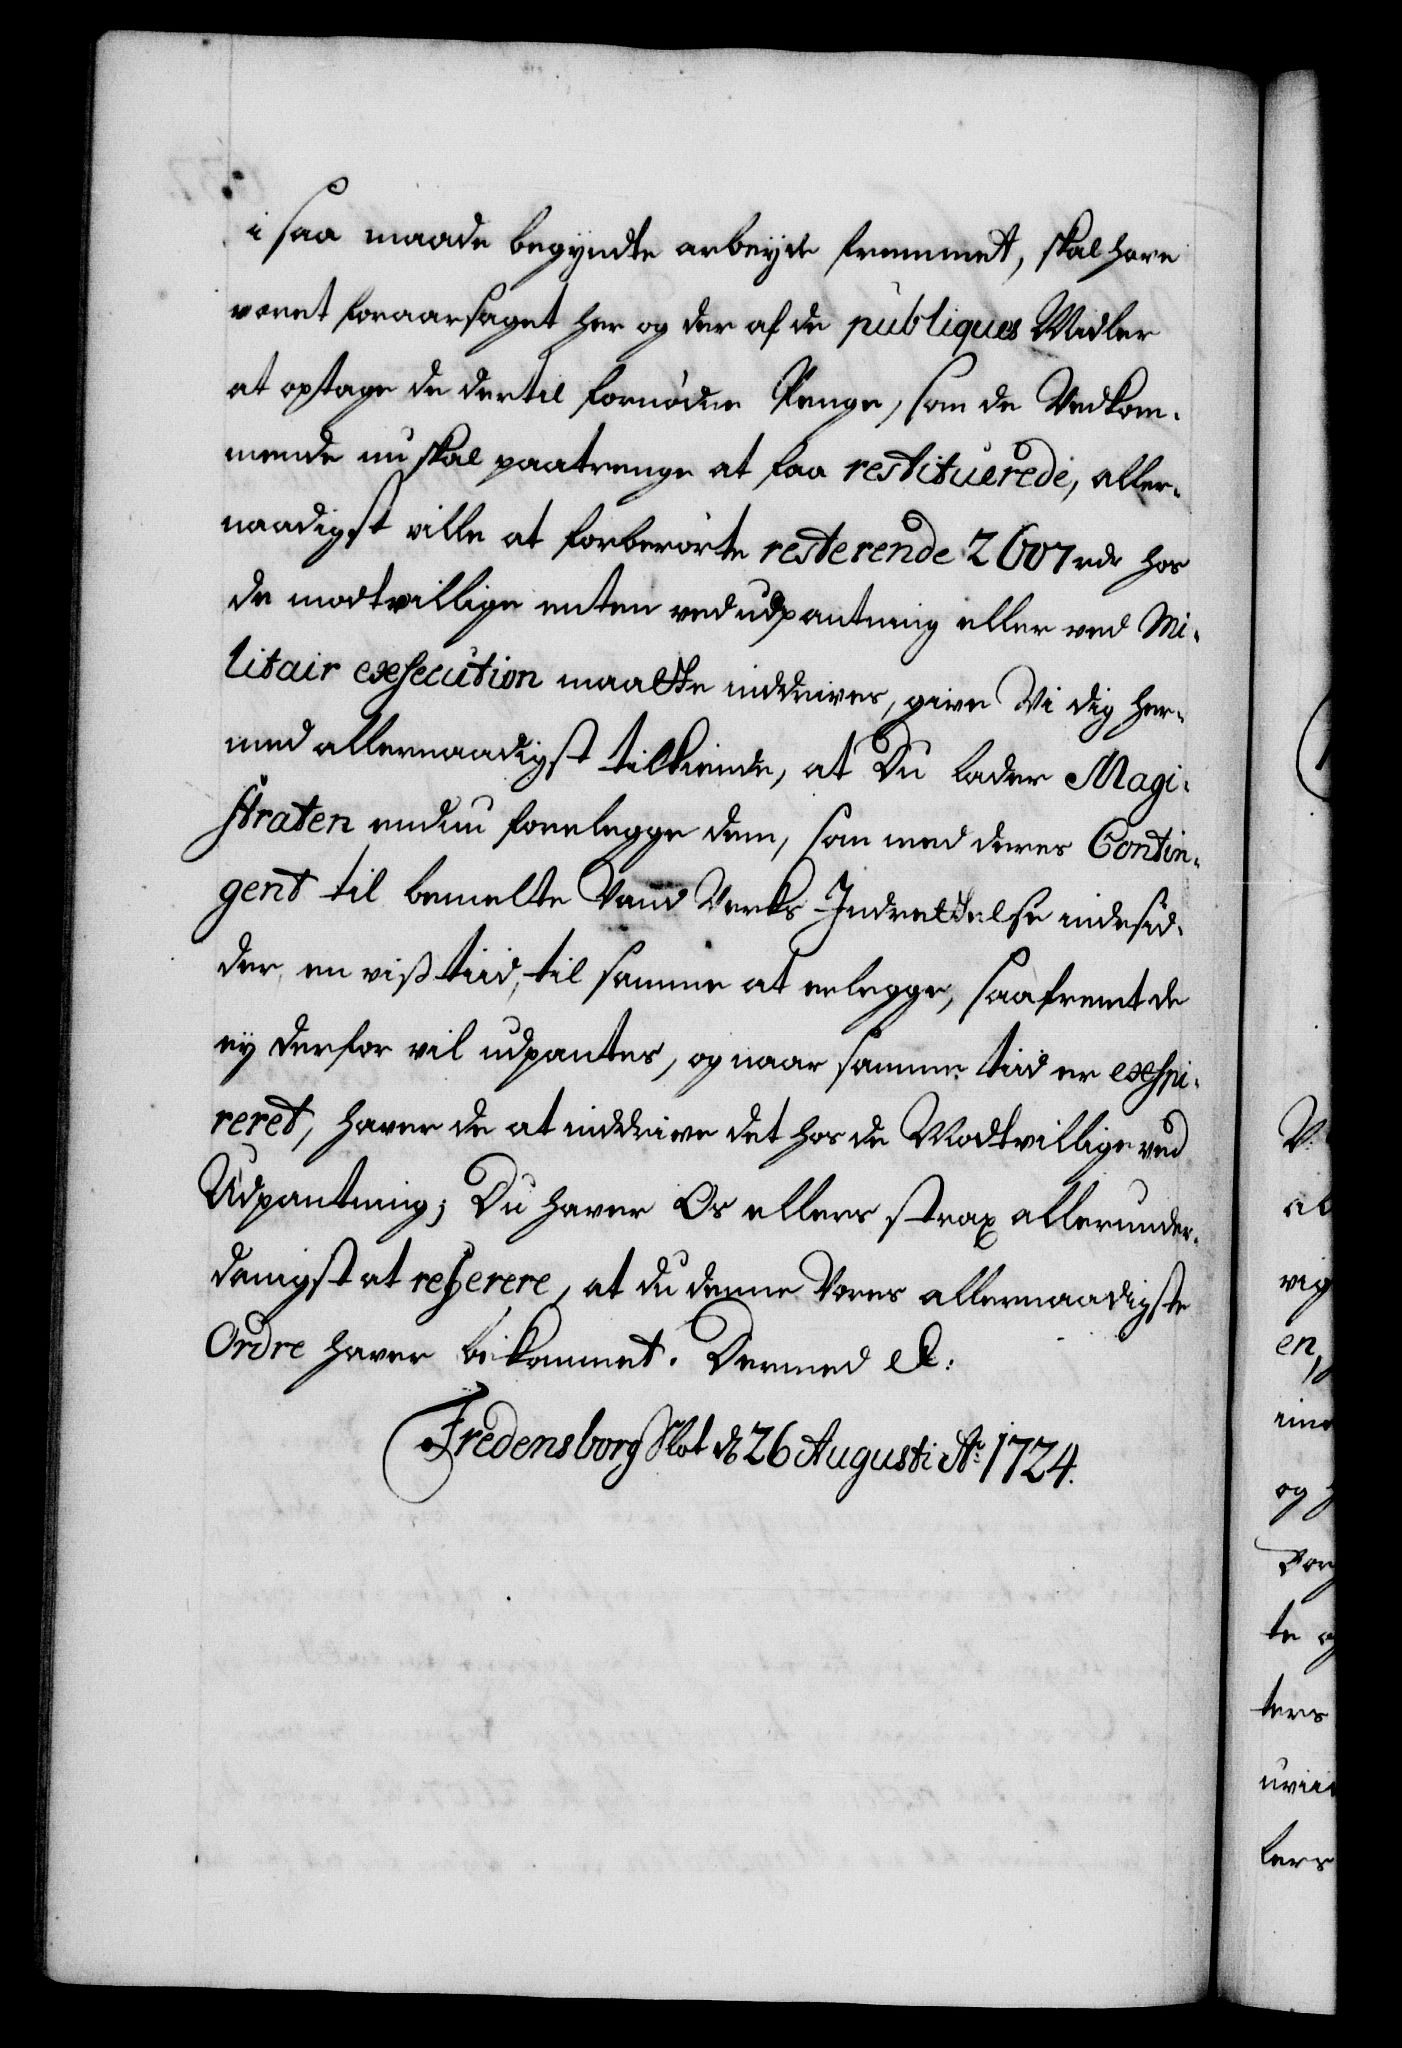 i saa maade begyndte arbeyde fremmet, skal have
været foraarsaget her og der af de publiques Midler
at optage de dertil fornødne Penge, som de Vedkom-
mende nu skal paatrenge at faa restituerede, aller-
naadigst ville at forberørte resterende 2607 rdr hos
de modtvillige enten ved udpantning eller ved Mi-
litair execution maatte inddrives, give Vi dig her-
med allernaadigst tilkiende, at Du lader Magi-
straten endnu forelegge dem, som med deres Contin-
gent til bemelte Vand Verks Indrettelse indesid-
der, en viss tiid, til samme at erlegge, saafremt de
ey derfor vil udpantes, og naar samme tiid er exspi-
reret, haver de at inddrive det hos de Modtvillige ved
Udpantning; Du haver Os ellers strax allerunder-
danigst at referere, at du denne Vores allernaadigste
Ordre haver bekommet. Dermed &c:
Fredensborg Slot d. 26 Augusti Ao. 1724.
al
vig
en,
og
te
ters
lers